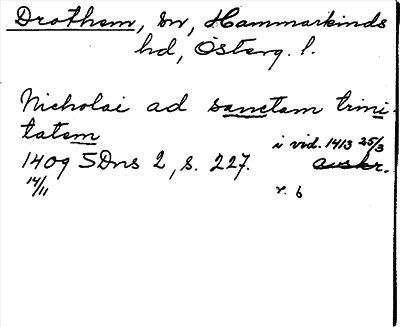 Drothem, sn, Hammarkinds
hd, Österg. l.
Nicholai ad sanctam trini-
tatem
i vid. 1413 25/3
1409 SDns 2, s. 227. avskr.
14/11
r. b